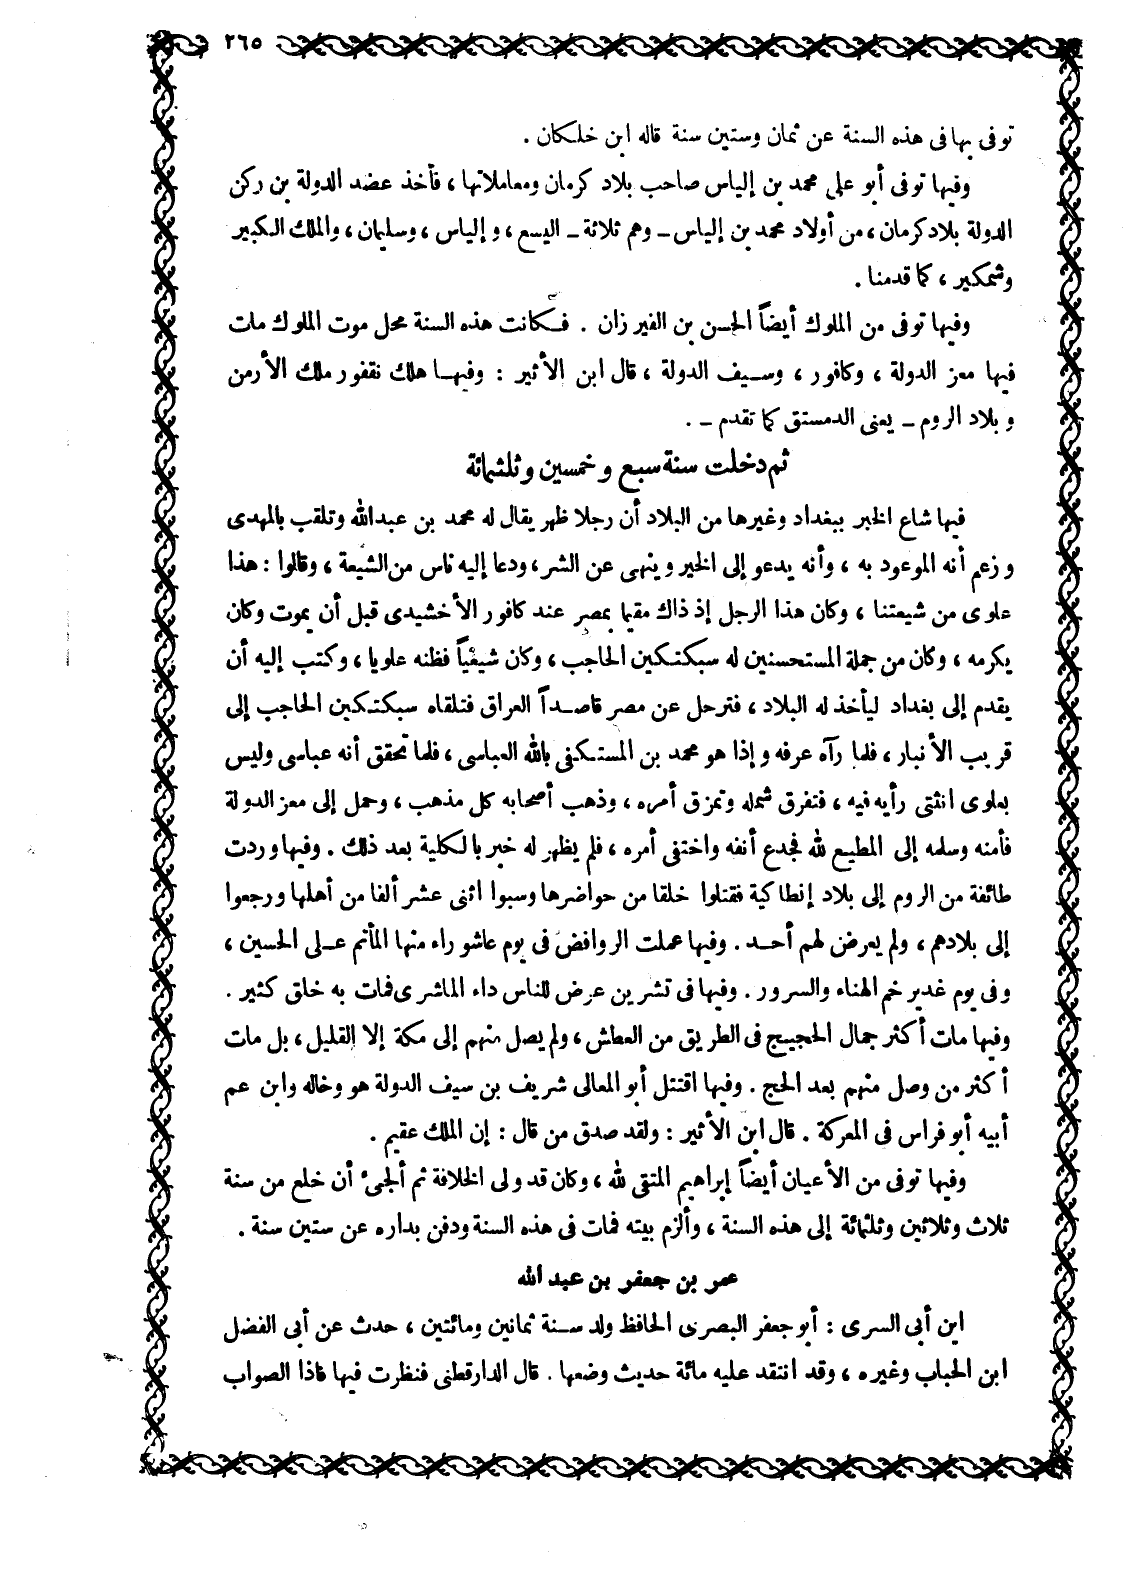 ٢٦٥
توفى بها فى هذه السنة عن ثمان وستين سنة قاله ابن خلكان .
وفيها توفى أبو على محمد بن إلياس صاحب بلاد كرمان ومعاملاتها ، فأخذ عضد الدولة بن ركن
الدولة بلاد كرمان ، من أولاد محمد بن إلياس ـ وهم ثلاثة ـ اليسع ، و إلياس ، وسليمان ، والملك الكبير
وشمكير ، كما قدمنا .
وفيها توفى من الملوك أيضاً الحسن بن الفيرزان . فكانت هذه السنة محل موت الملوك مات
فيها معز الدولة ، وكافور ، وسيف الدولة ، قال ابن الأثير : وفيها هلك نقفور ملك الأرمن
و بلاد الروم ـ يعنى الدمستق كما تقدم ـ .
ثم دخلت سنة سبع وخمسين وثلثمائة
فيها شاع الخبر ببغداد وغيرها من البلاد أن رجلا ظهر يقال له محمد بن عبدالله وتلقب بالمهدى
و زعم أنه الموعود به ، وأنه يدعو إلى الخير وينهى عن الشر ، ودعا إليه ناس من الشيعة ، وقالوا : هذا
علوى من شيعتنا ، وكان هذا الرجل إذ ذاك مقيما بمصر عند كافور الأخشيدى قبل أن يموت وكان
يكرمه ، وكان من جملة المستحسنين له سبكتكين الحاجب ، وكان شيعياً فظنه علويا ، وكتب إليه أن
يقدم إلى بغداد ليأخذ له البلاد ، فترحل عن مصر قاصداً العراق فتلقاه سبكتكين الحاجب إلى
قريب الأنبار ، فلما رآه عرفه و إذا هو محمد بن المستكفى بالله العباسى ، فلما تحقق أنه عباسى وليس
بعلوى انثنى رأيه فيه ، فتفرق شمله وتمزق أمره ، وذهب أصحابه كل مذهب ، وحمل إلى معز الدولة
فأمنه وسلمه إلى المطيع لله فجدع أنفه واختفى أمره ، فلم يظهر له خبر بالكلية بعد ذلك . وفيها وردت
طائفة من الروم إلى بلاد إنطاكية فقتلوا خلقا من حواضرها وسبوا اثنى عشر ألفا من أهلها ورجعوا
إلى بلادهم ، ولم يعرض لهم أحد . وفيها عملت الروافض فى يوم عاشوراء منها المأتم على الحسين ،
وفى يوم غدير خم الهناء والسرور . وفيها فى تشرين عرض للناس داء الماشرى فمات به خلق كثير .
وفيها مات أكثر جمال الحجيج فى الطريق من العطش ، ولم يصل منهم إلى مكة إلا القليل ، بل مات
أكثر من وصل منهم بعد الحج . وفيها اقتتل أبو المعالى شريف بن سيف الدولة هو وخاله وابن عم
أبيه أبو فراس فى المعركة . قال ابن الأثير : ولقد صدق من قال : إن الملك عقيم .
وفيها توفى من الأعيان أيضاً إبراهيم المتقى لله ، وكان قد ولى الخلافة ثم ألجئ أن خلع من سنة
ثلاث وثلاثين وثلثمائة إلى هذه السنة ، وألزم بيته فمات فى هذه السنة ودفن بداره عن ستين سنة .
عمر بن جعفر بن عبد الله
ابن أبى السرى : أبو جعفر البصرى الحافظ ولد سنة ثمانين ومائتين ، حدث عن أبى الفضل
ابن الحباب وغيره ، وقد انتقد عليه مائة حديث وضعها . قال الدارقطنى فنظرت فيها فاذا الصواب